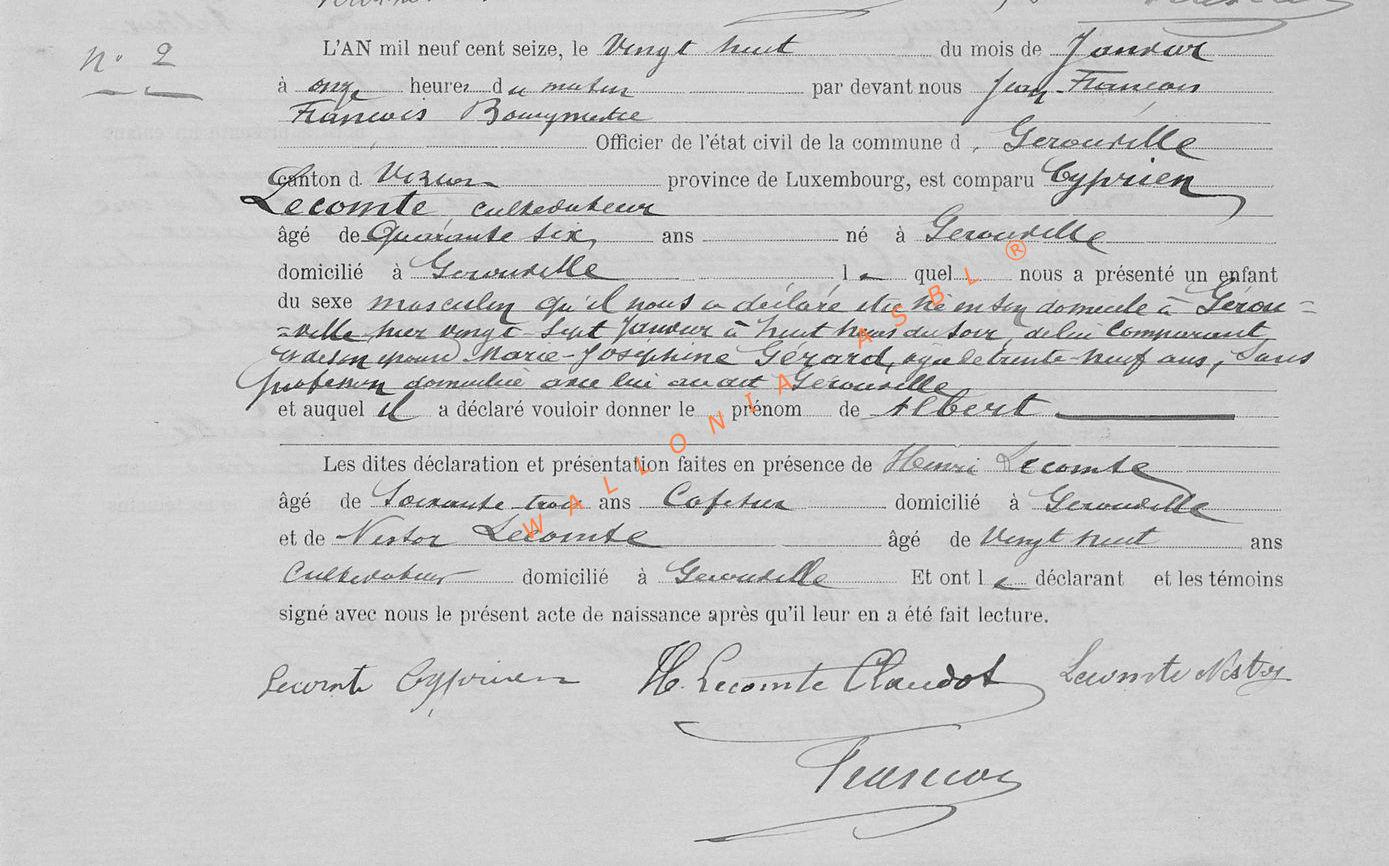 n° 2
L'AN mil neuf cent seize, le Vingt huit du mois de Janvier
à onze heures du matin par devant nous Jean-François
François Bourgmestre
Officier de l'état civil de la commune d Gerouville
canton d Virton province de Luxembourg, est comparu Cyprien
Lecomte, cultivateur
âgé de Quarante six ans né à Gerouville
domicilié à Gerouville le quel nous a présenté un enfant
du sexe masculin qu'il nous a déclaré être né en son domicile à Gérou=
=ville hier vingt-sept Janvier à huit heures du soir, de lui comparant
et de son épouse Marie-Joséphine Gérard, agée de trente-neuf ans, Sans
profession domiciliée avec lui au dit Gérouville
et auquel il a déclaré vouloir donner le prénom de Albert
Les dites déclaration et présentation faites en présence de Henri Lecomte
âgé de Soixante trois ans Cafetier domicilié à Gerouville
et de Nestor Lecomte âgé de Vingt huit ans
Cultivateur domicilié à Gerouville Et ont le déclarant et les témoins
signé avec nous le présent acte de naissance après qu'il leur en a été fait lecture.
Lecomte Cyprien H. Lecomte Claudot Lecomte Nestor
Francois
WALLONIA ASBL ®